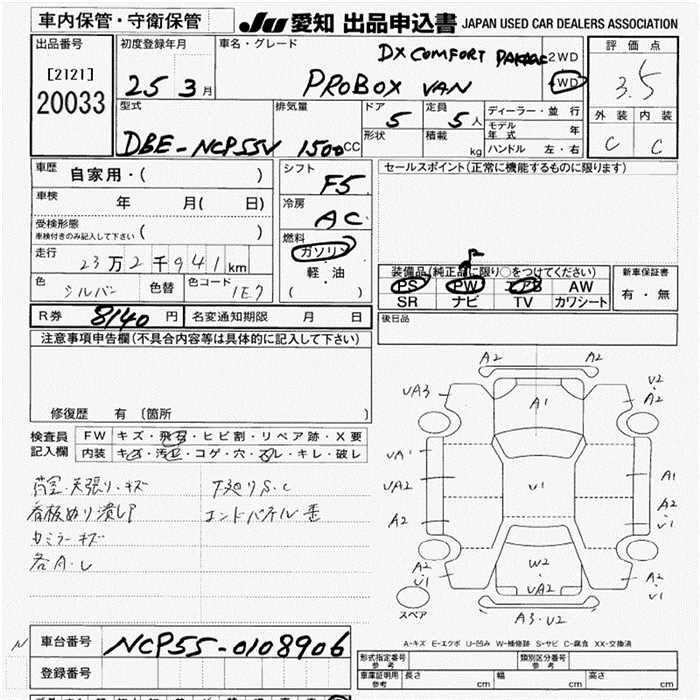 車内保管・守衛保管
JU 愛知 出品申込書 JAPAN USED CAR DEALERS ASSOCIATION
出品番号
[2121]
20033
初度登録年月
25 3月
車名・グレード
DX COMFORT
PROBOX VAN
2WD
4WD
評価点
3.5
外装 内装
C C
型式
DBE-NCP55V
排気量
1500CC
ドア
5
定員
5人
形状
積載
kg
ディーラー・並行
モデル年式 年
ハンドル 左・右
車歴
自家用・( )
車検
年 月( 日)
受検形態
車検付きのみ記入して下さい ( )
走行
23万2千941km
色
シルバー
色替
色コード
1E7
シフト
F5
冷房
AC
燃料
ガソリン
軽・油
( )
セールスポイント(正常に機能するものに限ります)
装備品(純正品に限り○をつけてください)
PS PW エアB AW
SR ナビ TV カワシート
新車保証書
有・無
R券 8140円
名変通知期限 月 日
後日品
注意事項申告欄(不具合内容等は具体的に記入して下さい)
修復歴 有 (箇所 )
検査員記入欄
FW キズ・飛石・ヒビ割・リペア跡・X要
内装 キズ・汚れ・コゲ・穴・スレ・キレ・破レ
荷室・天張り・キズ
看板ぬり潰し
下廻りS.C
各A・U
A2 A2
UA3
A1
U2
A2
UA1
UA2
A2
U1
A1
A2
U1
A2
U1
W2
UA2
A2
U1
スペア
A3・U2
A-キズ E-エクボ U-凹み W-補修跡 S-サビ C-腐食 XX-交換済
N
車台番号
NCP55-0108906
登録番号
形式指定番号
参考
類別区分番号
参考
車庫証明用
参考
長さ cm 幅 cm 高さ cm